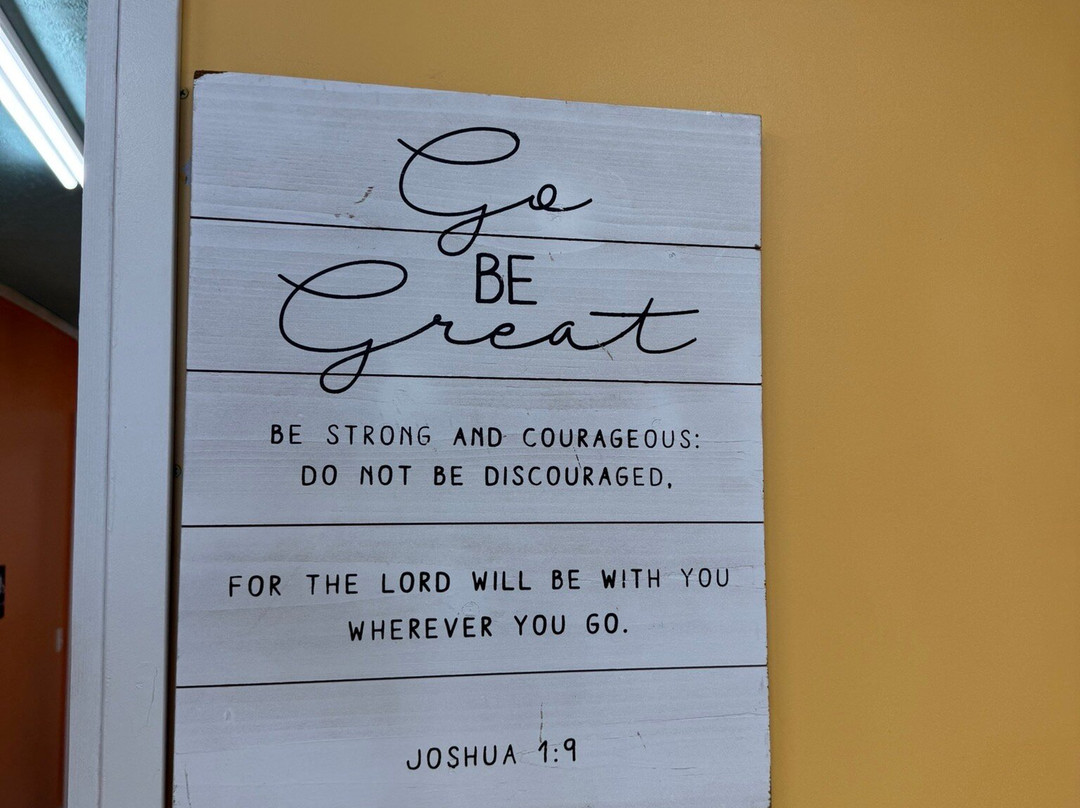 Go
BE
Great
BE STRONG AND COURAGEOUS:
DO NOT BE DISCOURAGED,
FOR THE LORD WILL BE WITH YOU
WHEREVER YOU GO.
JOSHUA 1:9